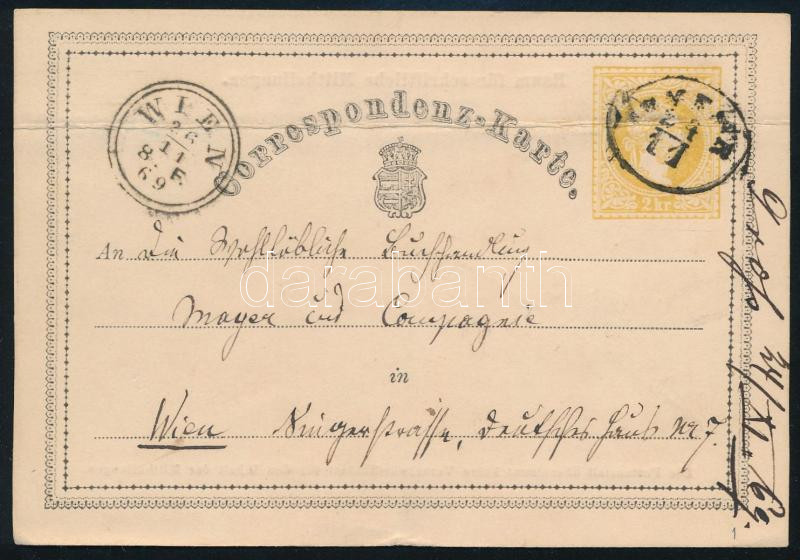 WIEN
26
11
8. F.
69
Correspondenz-Karte.
24
11
2 kr
An die Wohllöbliche Buchhandlung
darabanth
Mayer und Compagnie
in
Wien Singerstrasse, deutsches Haus Nr 7.
24/XI 69.
1